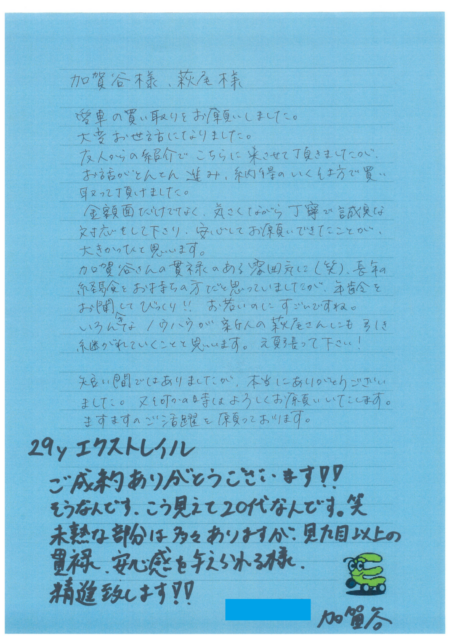 加賀谷様、萩尾様
愛車の買い取りをお願いしました。
大変お世話になりました。
友人からの紹介でこちらに来させて頂きましたが、
お話がとんとん進み、納得のいくく方で買い
取って頂けました。
金額面だけでなく、気さくながら丁寧で誠実な
対応をして下さり、安心してお願いできたことが、
大きかったと思います。
加賀谷さんの貫禄のある雰囲気に(笑)、長年の
経験をお持ちの方だと思っていましたが、年齢を
お聞してびっくり!! お若いのにすごいですね。
いろんなノウハウが新人の萩尾さんにも引き
継がれていくことと思います。頑張って下さい!
短い間ではありましたが、本当にありがとうござい
ました。又何かの時はよろしくお願いいたします。
ますますのご活躍を願っております。
29y エクストレイル
ご成約ありがとうございます!!
そうなんです、こう見えて20代なんです。笑
未熟な部分は多々ありますが、見た目以上の
貫禄、安心感を与えられる様、
精進致します!!
加賀谷